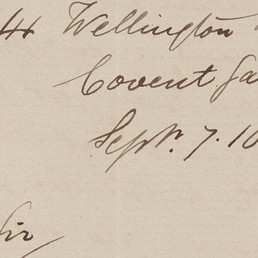 44 Wellington
Covent Ga
Sept. 7. 10
Sir